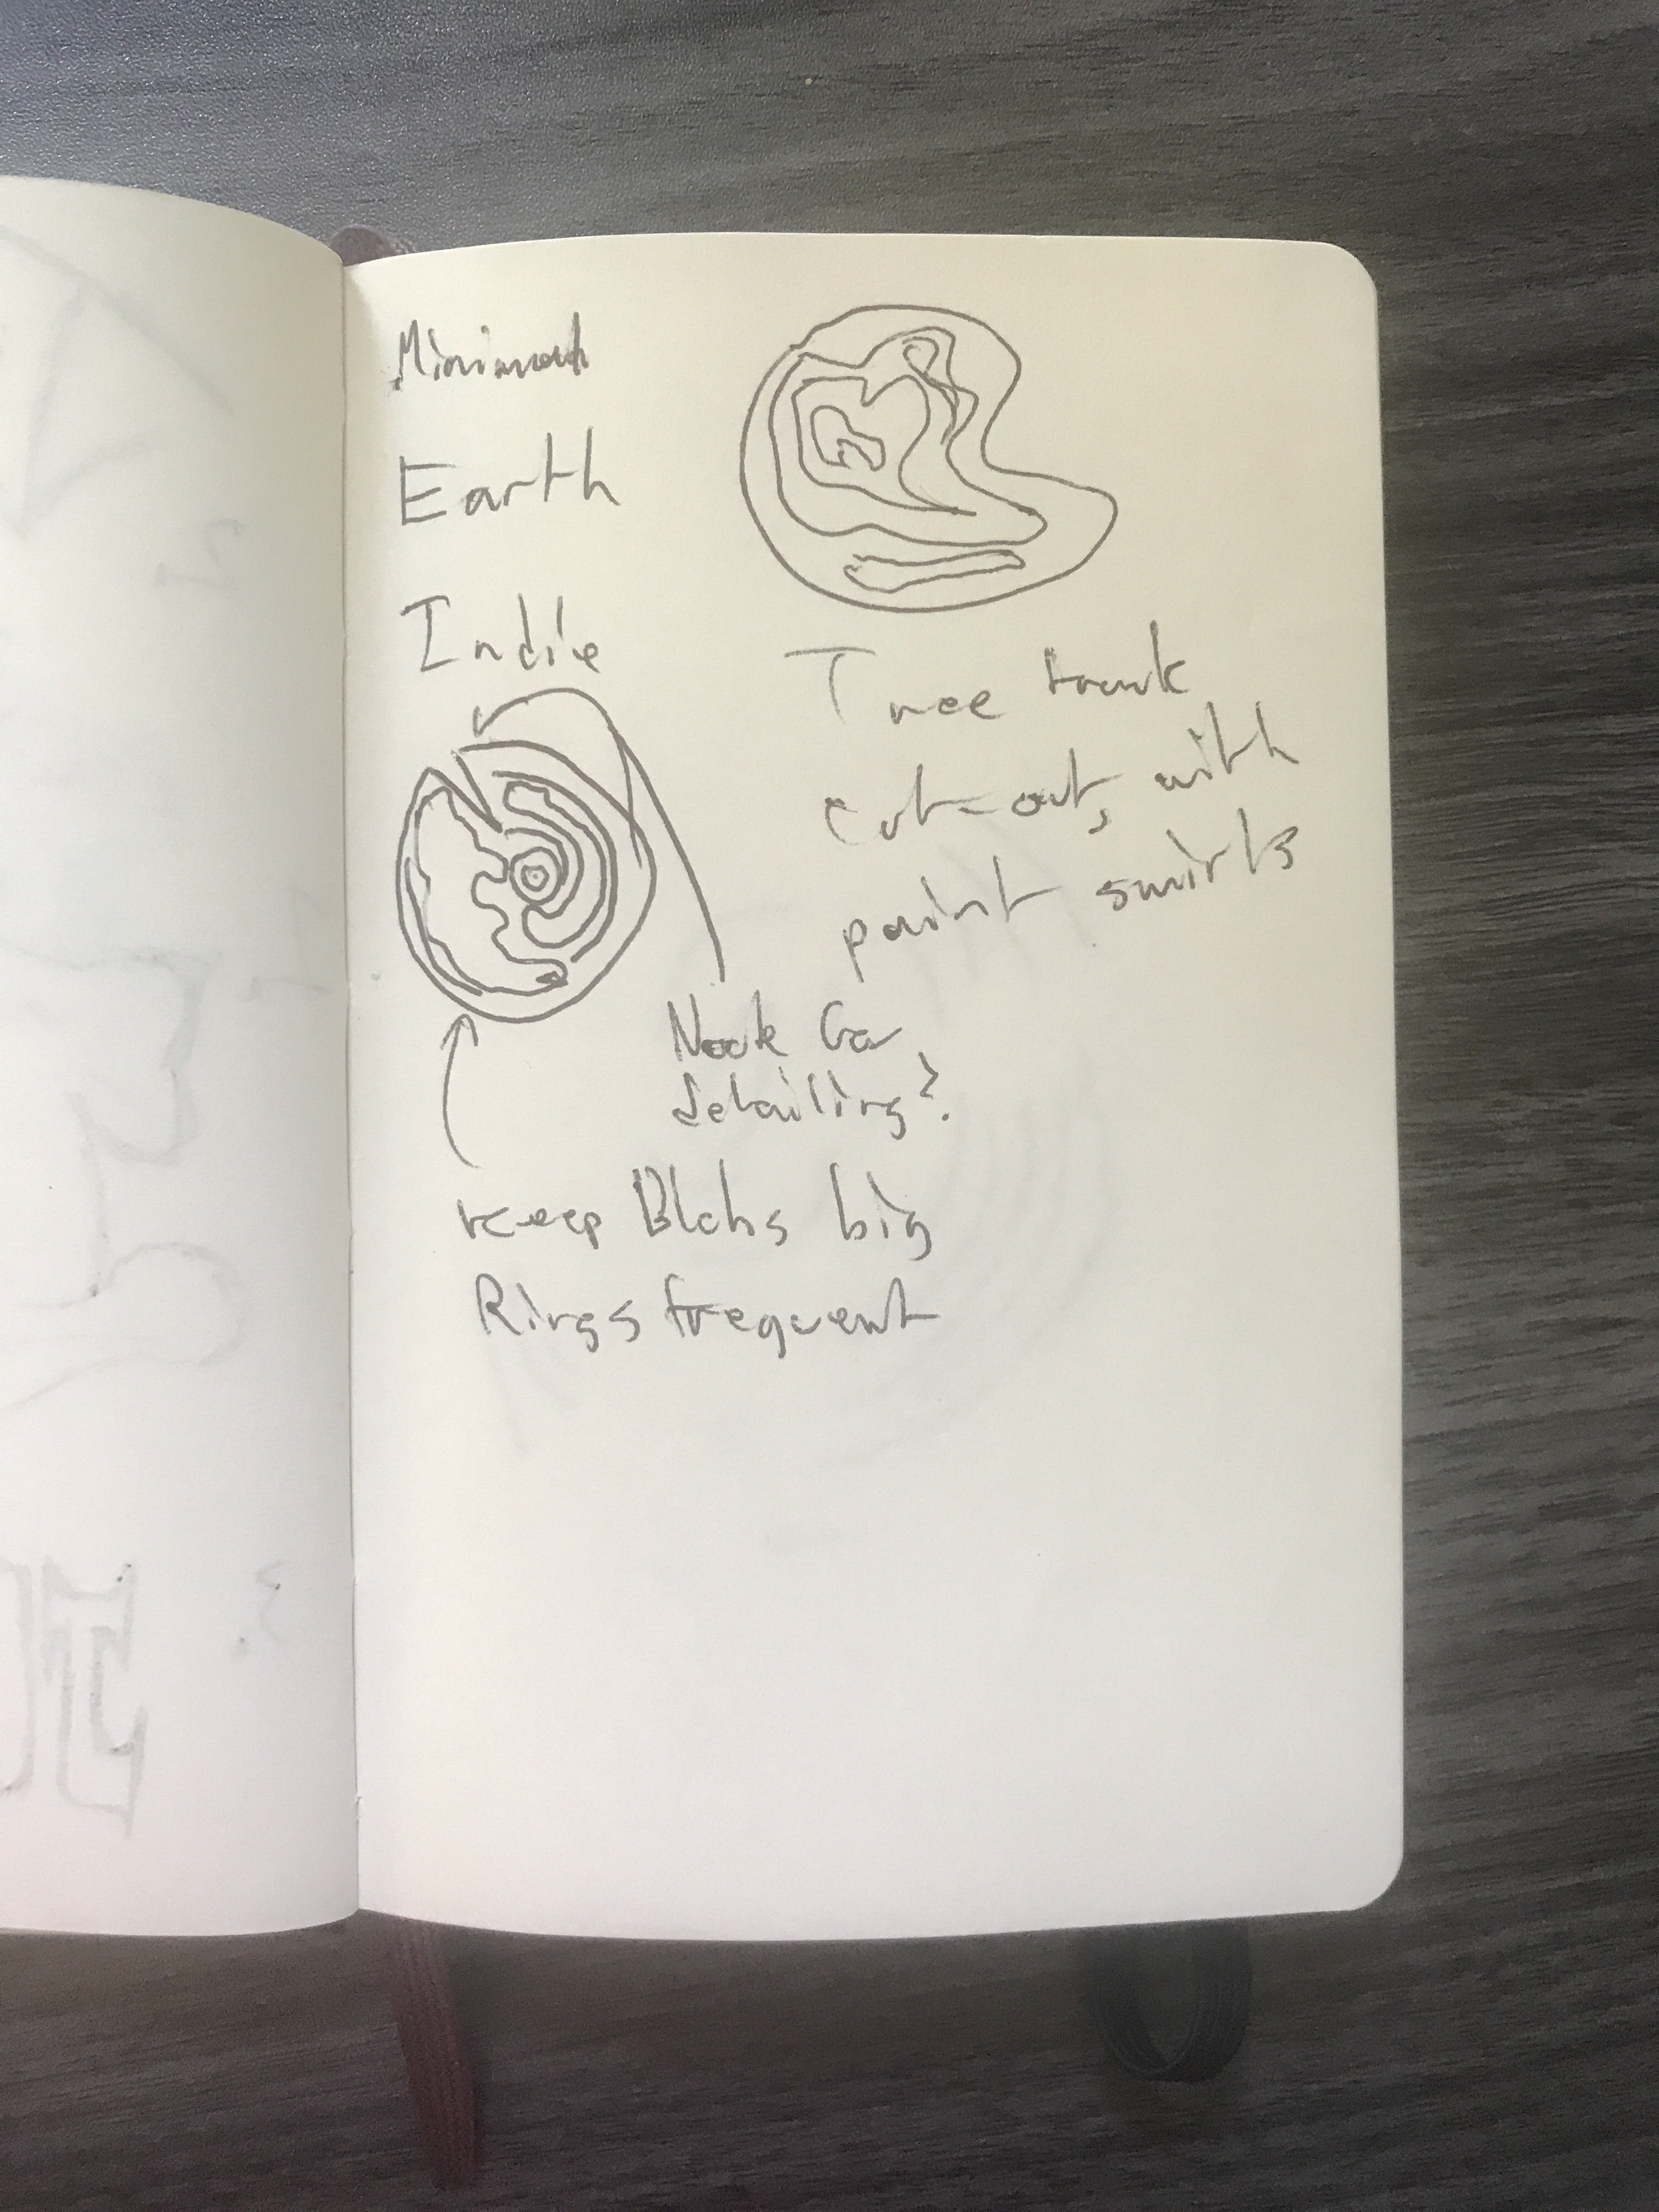 Earth
Indie
Tree trunk
cut-out, with
paint swirls
Nook
detailing?
keep Blobs big
Rings frequent